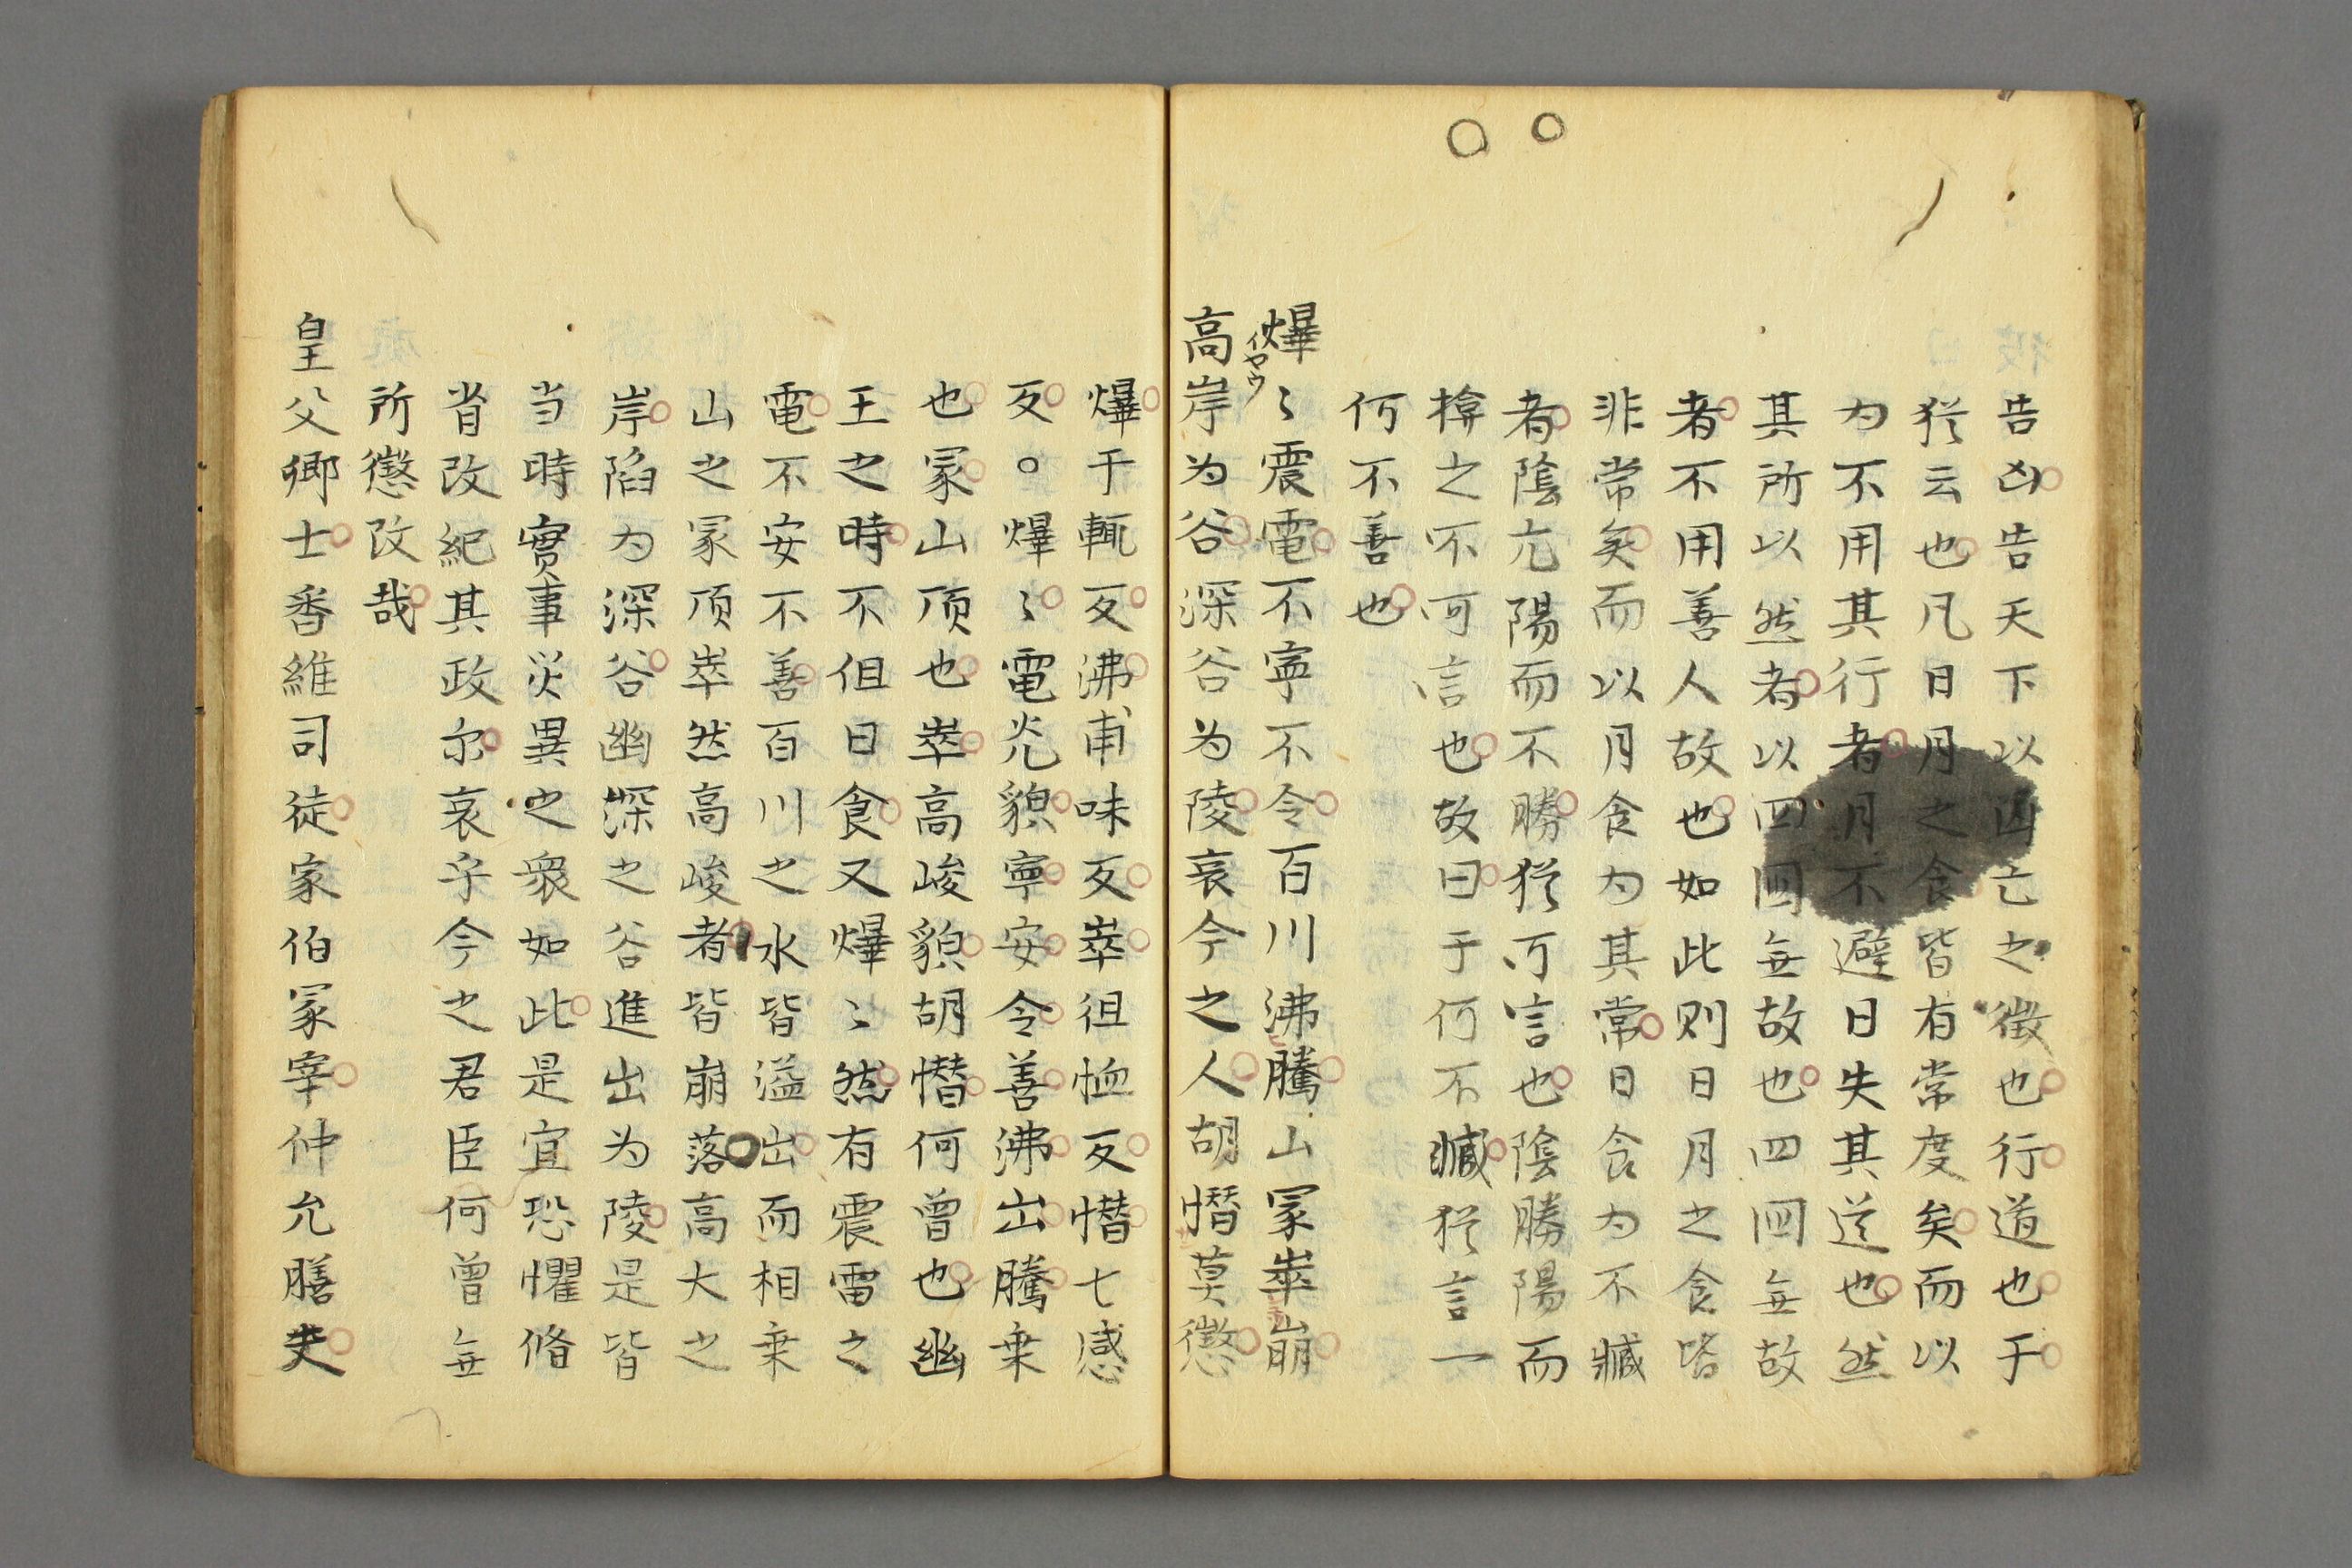 告凶告天下以凶亡之徴也行道也于
猶云也凡日月之食皆有常度矣而以
为不用其行者月不避日失其道也然
其所以然者以四国無故也四国無故
者不用善人故也如此則日月之食皆
非常矣而以月食为其常日食为不臧
者陰亢陽而不勝猶可言也陰勝陽而
揜之不可言也故曰于何不臧猶言一
何不善也
爗〻震電不寧不令百川沸騰山冢崒崩
イヤウ
高岸为谷深谷为陵哀今之人胡憯莫懲
爗于輒反沸甫味反崒徂恤反憯七感
反○爗〻電光貌寧安令善沸出騰乗
也冢山頂也崒高峻貌胡憯何曾也幽
王之時不但日食又爗〻然有震雷之
電不安不善百川之水皆溢出而相乗
山之冢頂崒然高峻者皆崩落高大之
岸陷为深谷幽深之谷進出为陵是皆
当時實事災異之衆如此是宜恐懼脩
省改紀其政尔哀乎今之君臣何曾無
所懲改哉
皇父卿士番維司徒家伯冢宰仲允膳夫